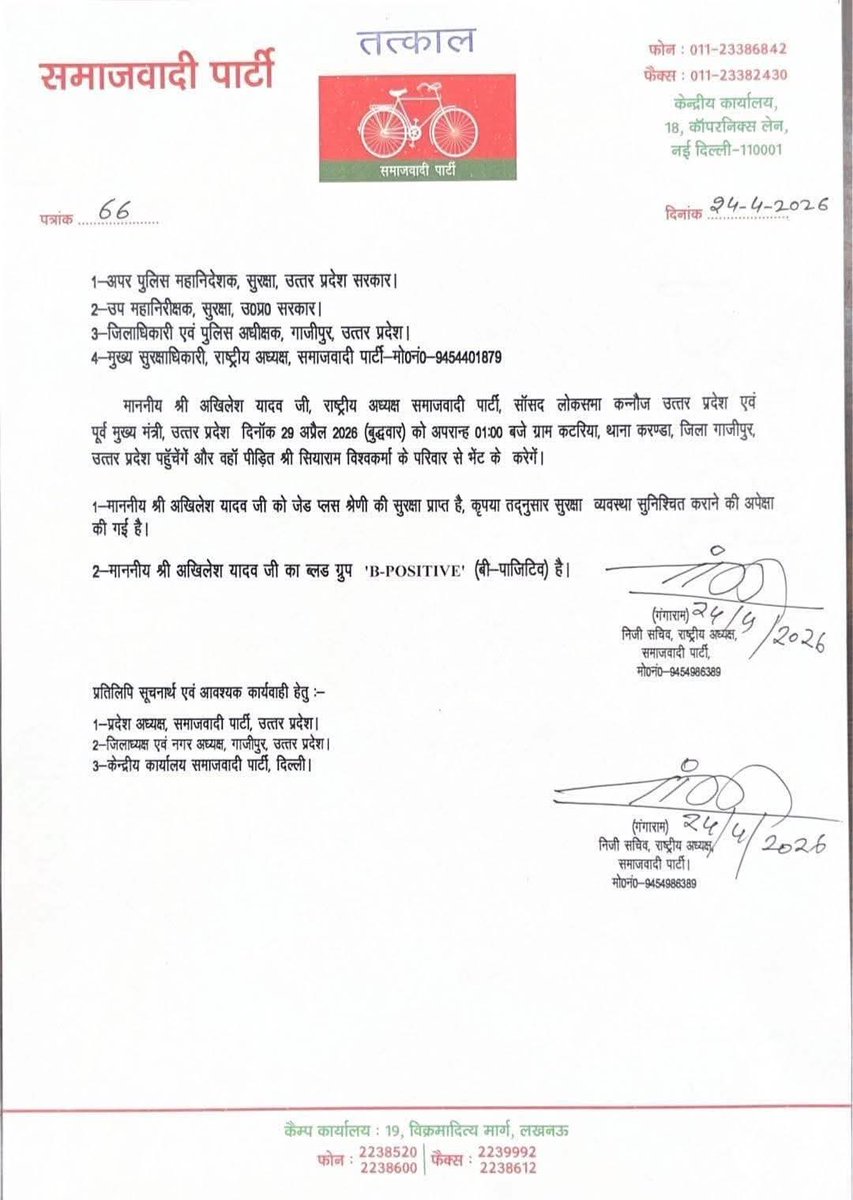 तत्काल
समाजवादी पार्टी
समाजवादी पार्टी
फोन : 011-23386842
फैक्स : 011-23382430
केन्द्रीय कार्यालय,
18, कॉपरनिक्स लेन,
नई दिल्ली-110001
पत्रांक ......66......
दिनांक 24-4-2026
1–अपर पुलिस महानिदेशक, सुरक्षा, उत्तर प्रदेश सरकार।
2–उप महानिरीक्षक, सुरक्षा, उ0प्र0 सरकार।
3–जिलाधिकारी एवं पुलिस अधीक्षक, गाजीपुर, उत्तर प्रदेश।
4–मुख्य सुरक्षाधिकारी, राष्ट्रीय अध्यक्ष, समाजवादी पार्टी–मो0नं0–9454401879
माननीय श्री अखिलेश यादव जी, राष्ट्रीय अध्यक्ष समाजवादी पार्टी, सॉसद लोकसभा कन्नौज उत्तर प्रदेश एवं
पूर्व मुख्य मंत्री, उत्तर प्रदेश दिनॉक 29 अप्रैल 2026 (बुद्धवार) को अपरान्ह 01:00 बजे ग्राम कटरिया, थाना करण्डा, जिला गाजीपुर,
उत्तर प्रदेश पहुॅचेंगें और वहॉ पीड़ित श्री सियाराम विश्वकर्मा के परिवार से भेंट के करेगें।
1–माननीय श्री अखिलेश यादव जी को जेड प्लस श्रेणी की सुरक्षा प्राप्त है, कृपया तद्नुसार सुरक्षा व्यवस्था सुनिश्चित कराने की अपेक्षा
की गई है।
2–माननीय श्री अखिलेश यादव जी का ब्लड ग्रुप 'B-POSITIVE' (बी–पाजिटिव) है।
(गंगाराम) 24/4/2026
निजी सचिव, राष्ट्रीय अध्यक्ष,
समाजवादी पार्टी,
मो0नं0–9454986389
प्रतिलिपि सूचनार्थ एवं आवश्यक कार्यवाही हेतु :–
1–प्रदेश अध्यक्ष, समाजवादी पार्टी, उत्तर प्रदेश।
2–जिलाध्यक्ष एवं नगर अध्यक्ष, गाजीपुर, उत्तर प्रदेश।
3–केन्द्रीय कार्यालय समाजवादी पार्टी, दिल्ली।
(गंगाराम) 24/4/2026
निजी सचिव, राष्ट्रीय अध्यक्ष,
समाजवादी पार्टी।
मो0नं0–9454986389
कैम्प कार्यालय : 19, विक्रमादित्य मार्ग, लखनऊ
फोन : 2238520 फैक्स : 2239992
2238600 2238612